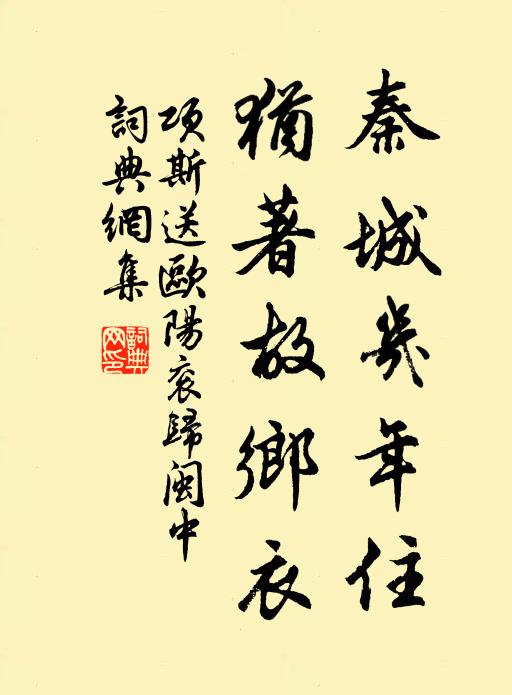 秦城幾年住
猶著故鄉衣
項斯送歐陽袞歸閩中
詞典網集
詞典網印